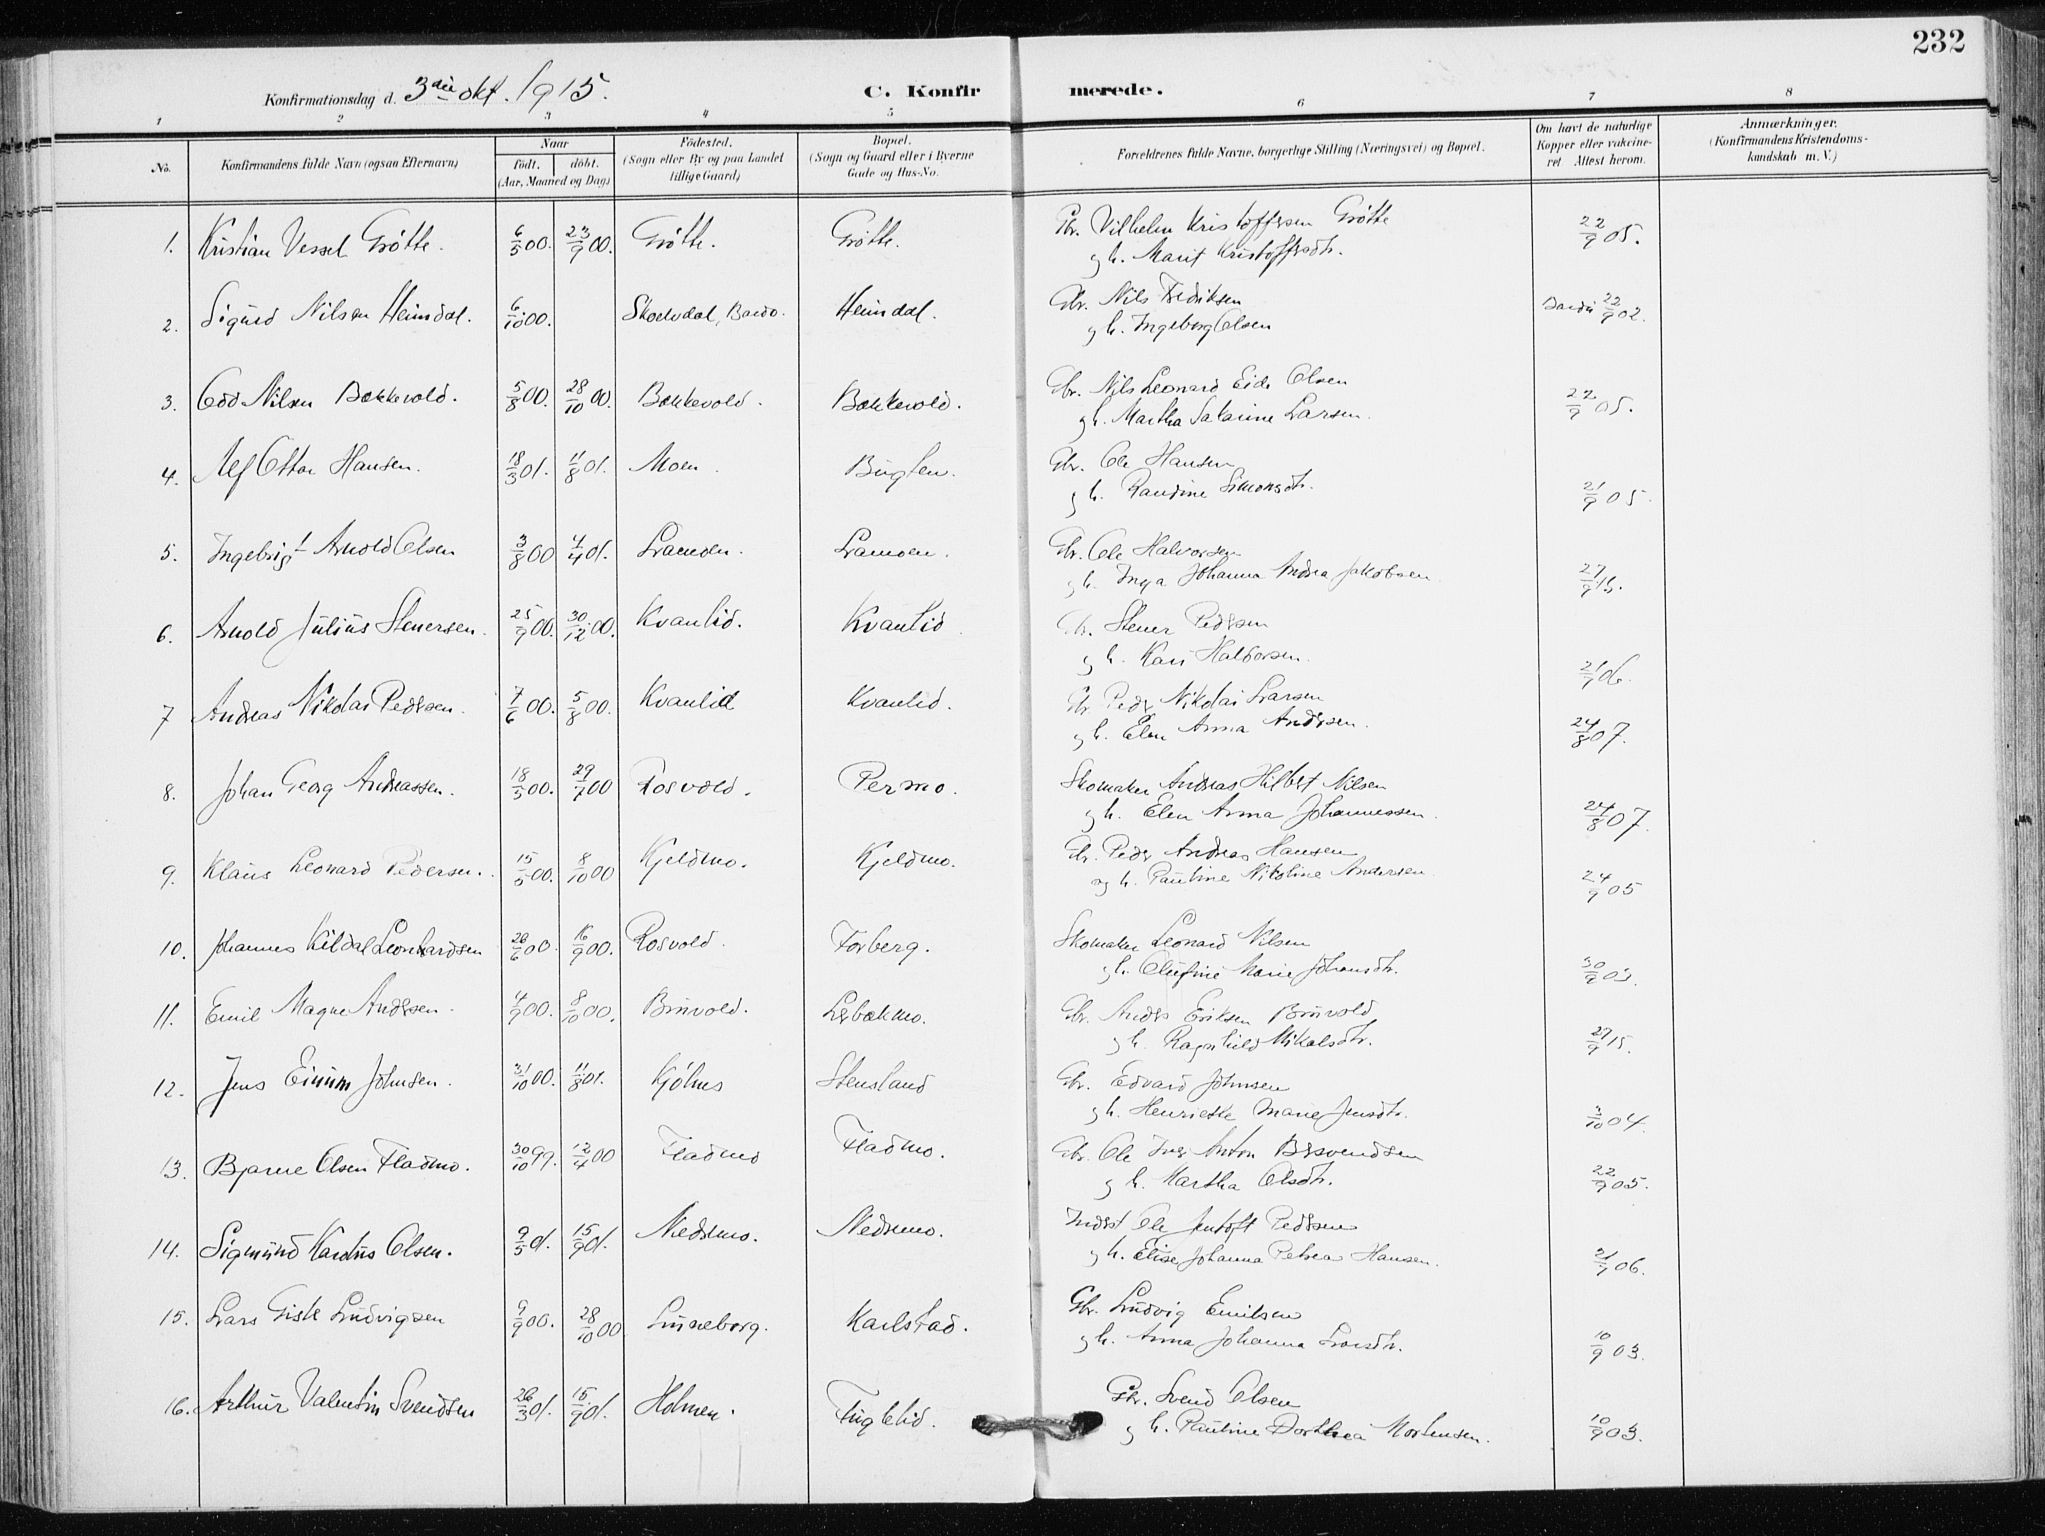 232
Konfirmationsdag d. 3die okt. 1915.
C. Konfirmerede.
1 2 3 4 5 6 7 8
No.
Konfirmandens fulde Navn (ogsaa Efternavn)
Naar
födt. döbt.
(Aar, Maaned og Dag)
Födested.
(Sogn eller By og paa Landet
tillige Gaard)
Bopæl.
(Sogn og Gaard eller i Byerne
Gade og Hus-No.
Forældrenes fulde Navne, borgerlige Stilling (Næringsvei) og Bopæl.
Om havt de naturlige
Kopper eller vakcine-
ret. Attest herom.
Anmærkninger.
(Konfirmandens Kristendoms-
kundskab m. V.)
1. Kristian Vessel Grötte. 6/5 00. 23/9 00. Grötte. Grötte. Gbr. Vilhelm Kristoffersen Grötte 22/9 05.
og h. Marit Kristoffersdtr.
2. Sigurd Nilsen Heimdal. 6/10 00. Skoelvdal, Bardo. Heimdal. Gbr. Nils Fredriksen Bardu 22/9 02.
og h. Ingeborg Olsen
3. Odd Nilsen Bakkevold. 5/8 00. 28/10 00. Bakkevold. Bakkevold. Gbr. Nils Leonard Eide Olsen 22/9 05.
og h. Martha Katarine Larsen.
4. Alf Ottar Hansen. 18/3 01. 11/8 01. Moen. Buglen. Gbr. Ole Hansen
og h. Randine Simonsdtr. 21/9 05.
5. Ingebrigt Arnold Olsen 3/8 00 4/4 01. Framoen. Framoen. Gbr. Ole Halvorsen
og h. Inga Johanna Andrea Jakobsen. 27/9 15.
6. Arnold Julius Stenersen. 25/9 00. 30/12 00. Kvanlid. Kvanlid Gbr. Stener Pedersen
og h. Kari Halvorsen. 21/9 06.
7 Andreas Nikolai Pedersen. 7/6 00. 5/8 00. Kvanlid Kvanlid. Gbr Peder Nikolai Larsen
og h. Elen Anna Andersen. 24/8 07.
8. Johan Georg Andreassen. 18/5 00. 29/7 00 Rosvold. Permo. Skomaker Andreas Hilbert Nilsen
og h. Elen Anna Johannessen. 24/8 07.
9. Klaus Leonard Pedersen. 15/5 00. 8/10 00 Kjeldmo. Kjeldmo. Gbr. Peder Andreas Hansen
og h. Pauline Nikoline Andersen. 24/9 05
10. Johannes Kildal Leonhardsen 28/6 00. 16/9 00. Rosvold. Forberg. Skomaker Leonard Nilsen
og h. Olufine Marie Johansdtr. 30/9 03.
11. Emil Magne Andersen. 4/9 00. 8/10 00. Brunvold. Lærbakmo. Gbr. Anders Eriksen Brunvold
og h. Ragnhild Mikalsdtr. 27/9 15.
12. Jens Einum Johnsen. 31/10 00. 11/8 01. Kjölnes Stensland Gbr. Edvard Johnsen
og h. Henriette Marie Jensdtr. 3/10 04.
13. Bjarne Olsen Fladmo. 30/10 99. 12/4 00 Fladmo Fladmo. Gbr. Ole Inger Anton Bersvendsen
og h. Martha Olsdtr. 22/9 05.
14. Sigmund Kardius Olsen. 9/5 01. 15/9 01. Nedremo. Nedremo. Inderst Ole Jentoft Pedersen
og h. Elise Johanna Petrea Hansen. 21/9 06.
15. Lars Giske Ludvigsen 9/9 00. 28/10 00 Lunneborg. Karlstad. Gbr. Ludvig Emilsen
og h. Anna Johanna Larsdtr. 10/9 03.
16. Arthur Valentin Svendsen 26/3 01. 15/9 01. Holmen. Fuglelid. Gbr. Svend Olsen
og h. Pauline Dorthea Mortensen. 10/9 03.